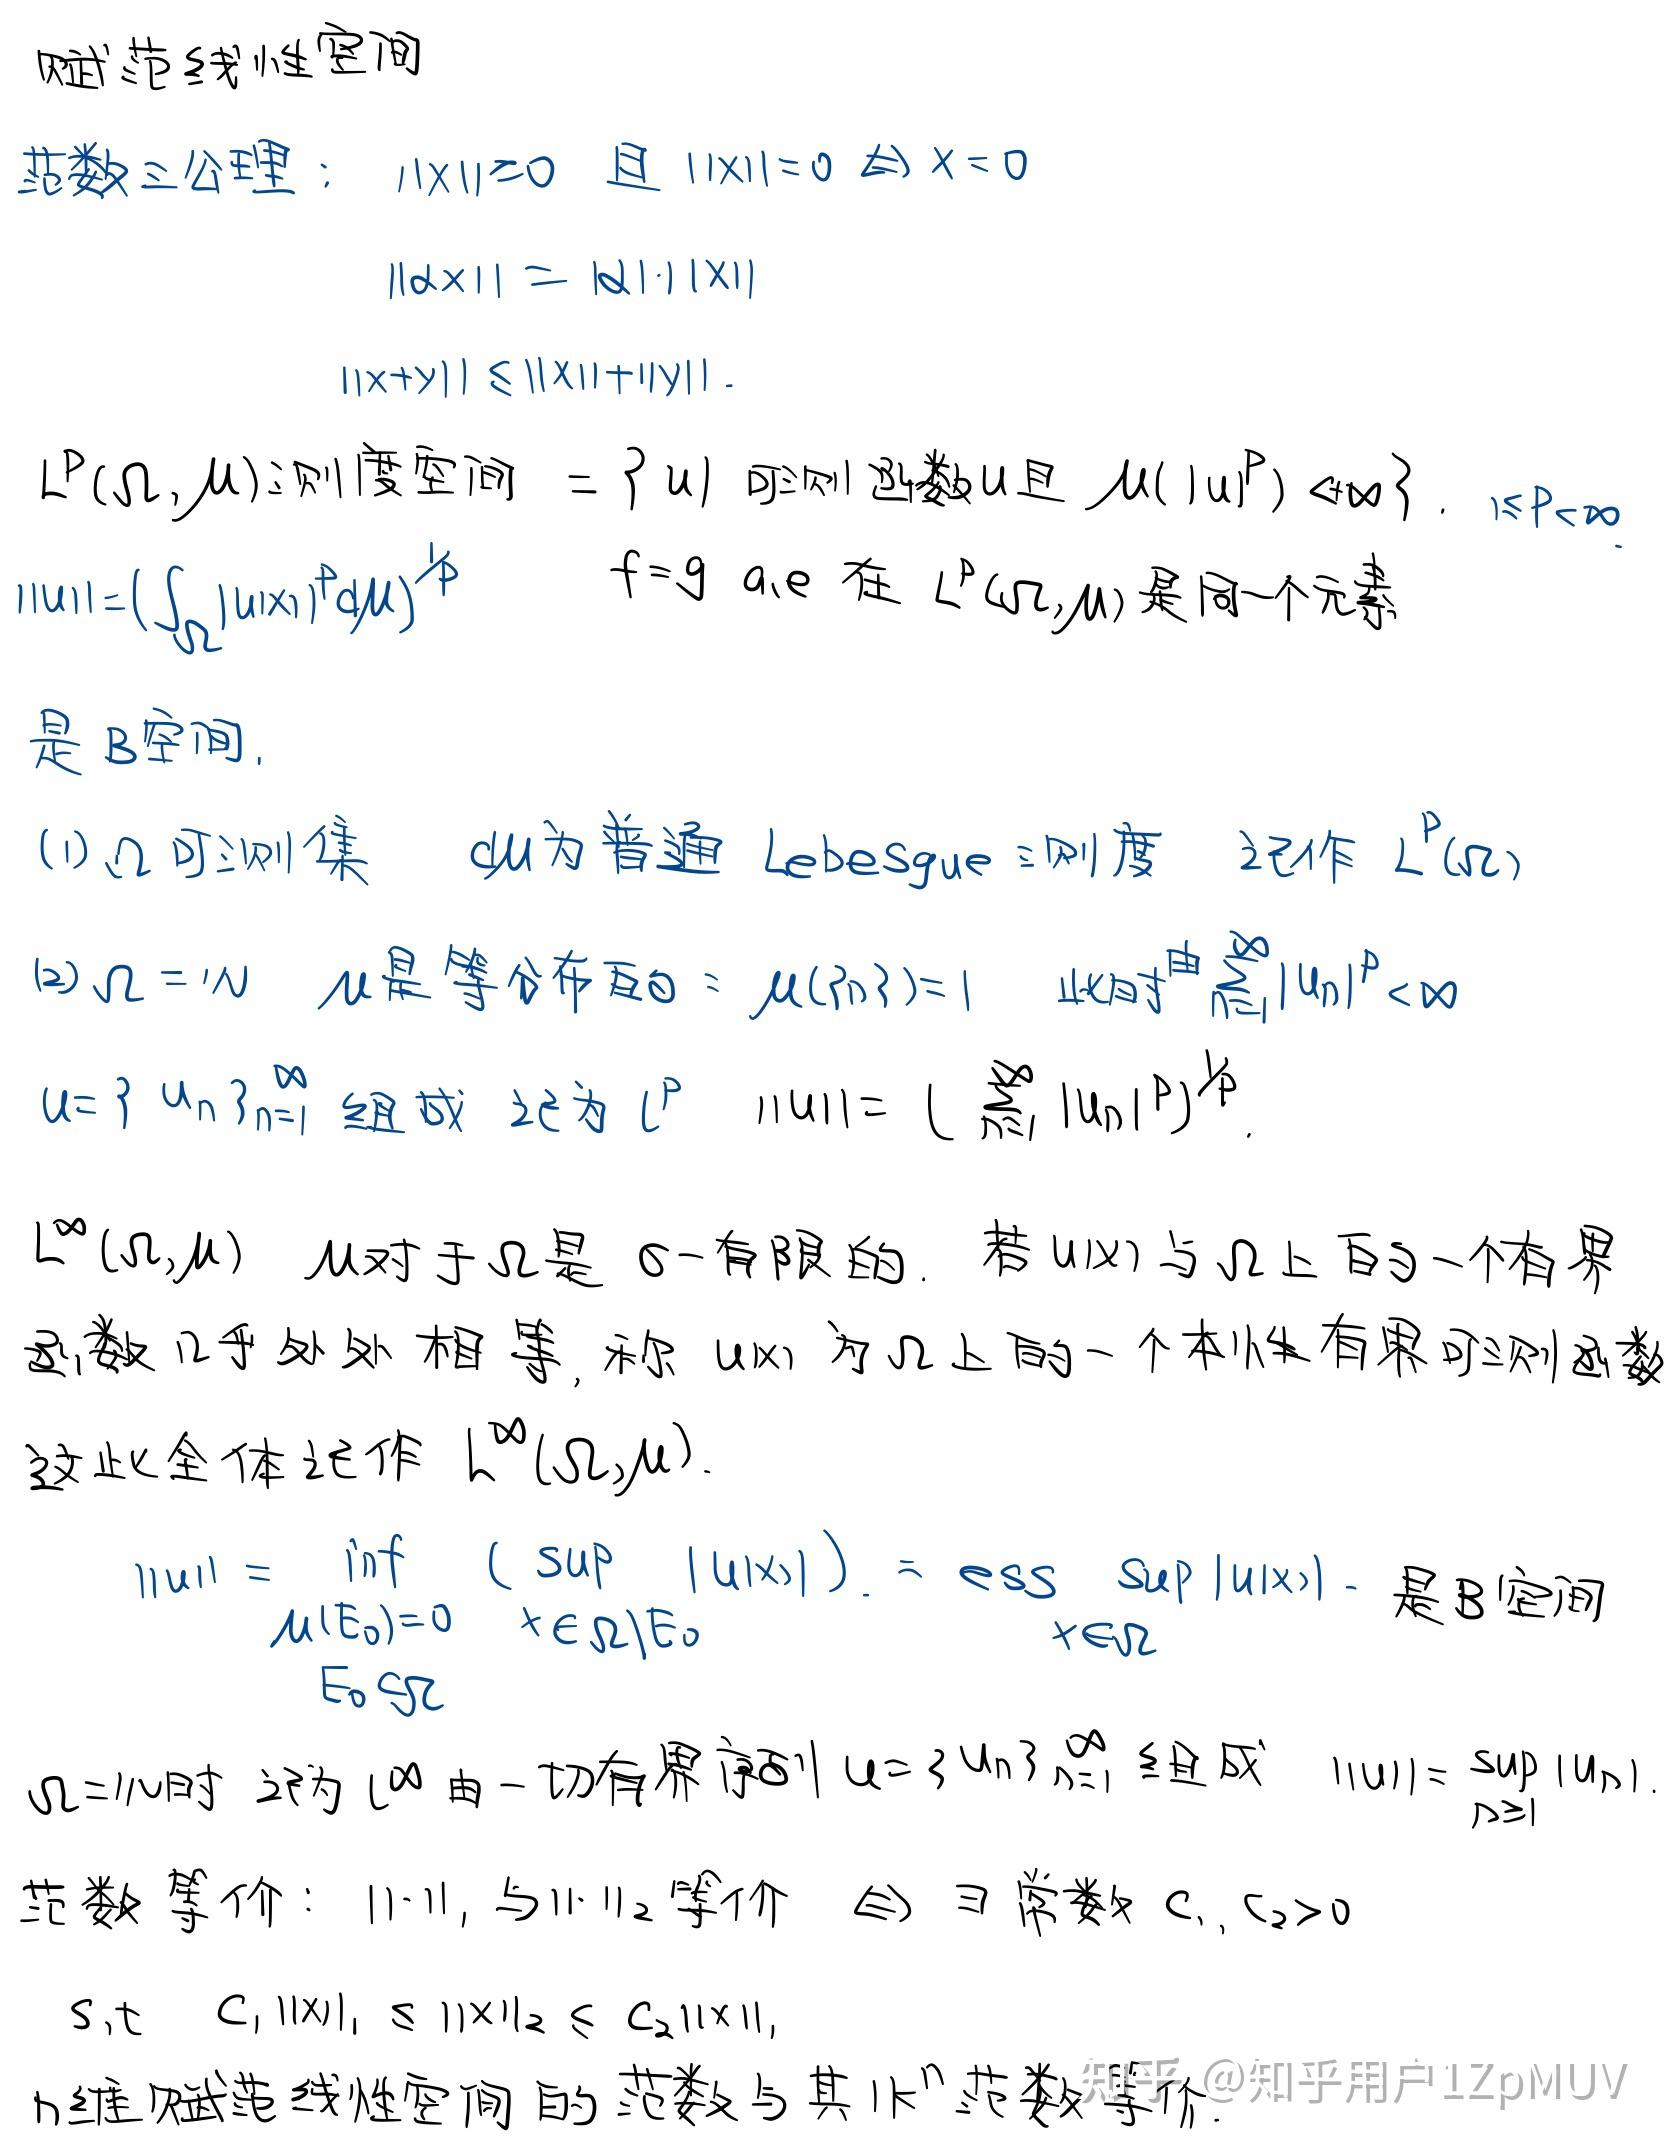 赋范线性空间
范数三公理: ||x||≥0 且 ||x||=0 ⇔ x=0
||αx|| = |α|·||x||
||x+y|| ≤ ||x||+||y||.
L^p(Ω,μ)测度空间 = {u| 可测函数u且 μ(|u|^p) <+∞}. 1≤p<∞.
||u||=(∫_Ω |u(x)|^p dμ)^{1/p} f=g a.e 在 L^p(Ω,μ)是同一个元素
是B空间.
(1) Ω可测集 dμ为普通 Lebesgue测度 记作 L^p(Ω)
(2) Ω=ℕ μ是等分布的: μ({n})=1 此时由 ∑_{n=1}^∞ |u_n|^p < ∞
u={u_n}_{n=1}^∞ 组成 记为 l^p ||u|| = (∑_{n=1}^∞ |u_n|^p)^{1/p}.
L^∞(Ω,μ) μ对于Ω是 σ-有限的. 若u(x)与Ω上的一个有界
函数几乎处处相等, 称 u(x)为Ω上的一个本性有界可测函数
这些全体记作 L^∞(Ω,μ).
||u|| = inf_{μ(E₀)=0 E₀⊂Ω} (sup_{x∈Ω\E₀} |u(x)|). = ess sup_{x∈Ω} |u(x)|. 是B空间
Ω=ℕ时 记为 l^∞ 由一切有界序列 u={u_n}_{n=1}^∞ 组成 ||u|| = sup_{n≥1} |u_n|.
范数等价: ||·||₁ 与||·||₂等价 ⇔ ∃ 常数 C₁, C₂>0
s.t C₁||x||₁ ≤ ||x||₂ ≤ C₂||x||₁
n维赋范线性空间的范数与其𝕂^n范数等价.
知乎 @知乎用户1ZpMUV